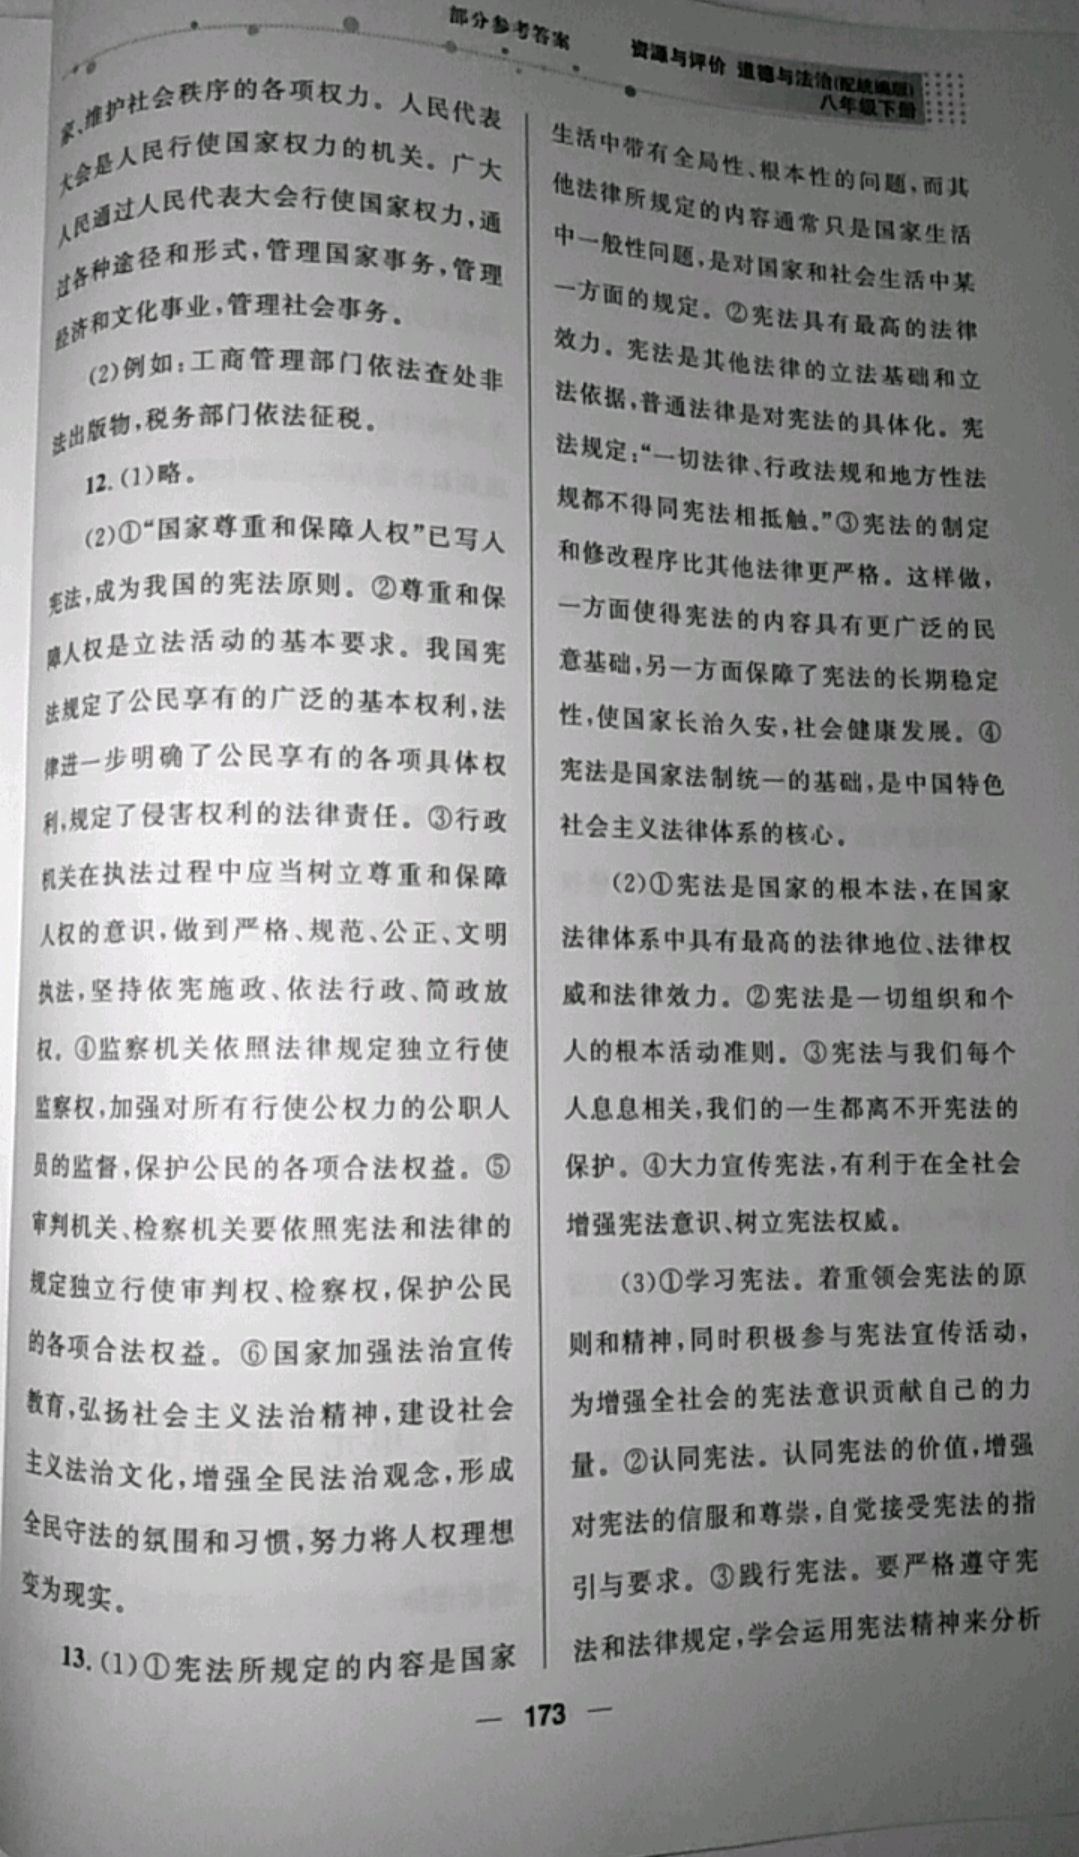 部分参考答案
资源与评价 道德与法治(配统编版)
八年级下册
家、维护社会秩序的各项权力。人民代表
大会是人民行使国家权力的机关。广大
人民通过人民代表大会行使国家权力,通
过各种途径和形式,管理国家事务,管理
经济和文化事业,管理社会事务。
(2)例如:工商管理部门依法查处非
法出版物,税务部门依法征税。
12.(1)略。
(2)①“国家尊重和保障人权”已写入
宪法,成为我国的宪法原则。②尊重和保
障人权是立法活动的基本要求。我国宪
法规定了公民享有的广泛的基本权利,法
律进一步明确了公民享有的各项具体权
利,规定了侵害权利的法律责任。③行政
机关在执法过程中应当树立尊重和保障
人权的意识,做到严格、规范、公正、文明
执法,坚持依宪施政、依法行政、简政放
权。④监察机关依照法律规定独立行使
监察权,加强对所有行使公权力的公职人
员的监督,保护公民的各项合法权益。⑤
审判机关、检察机关要依照宪法和法律的
规定独立行使审判权、检察权,保护公民
的各项合法权益。⑥国家加强法治宣传
教育,弘扬社会主义法治精神,建设社会
主义法治文化,增强全民法治观念,形成
全民守法的氛围和习惯,努力将人权理想
变为现实。
13.(1)①宪法所规定的内容是国家
生活中带有全局性、根本性的问题,而其
他法律所规定的内容通常只是国家生活
中一般性问题,是对国家和社会生活中某
一方面的规定。②宪法具有最高的法律
效力。宪法是其他法律的立法基础和立
法依据,普通法律是对宪法的具体化。宪
法规定:“一切法律、行政法规和地方性法
规都不得同宪法相抵触。”③宪法的制定
和修改程序比其他法律更严格。这样做,
一方面使得宪法的内容具有更广泛的民
意基础,另一方面保障了宪法的长期稳定
性,使国家长治久安,社会健康发展。④
宪法是国家法制统一的基础,是中国特色
社会主义法律体系的核心。
(2)①宪法是国家的根本法,在国家
法律体系中具有最高的法律地位、法律权
威和法律效力。②宪法是一切组织和个
人的根本活动准则。③宪法与我们每个
人息息相关,我们的一生都离不开宪法的
保护。④大力宣传宪法,有利于在全社会
增强宪法意识、树立宪法权威。
(3)①学习宪法。着重领会宪法的原
则和精神,同时积极参与宪法宣传活动,
为增强全社会的宪法意识贡献自己的力
量。②认同宪法。认同宪法的价值,增强
对宪法的信服和尊崇,自觉接受宪法的指
引与要求。③践行宪法。要严格遵守宪
法和法律规定,学会运用宪法精神来分析
— 173 —